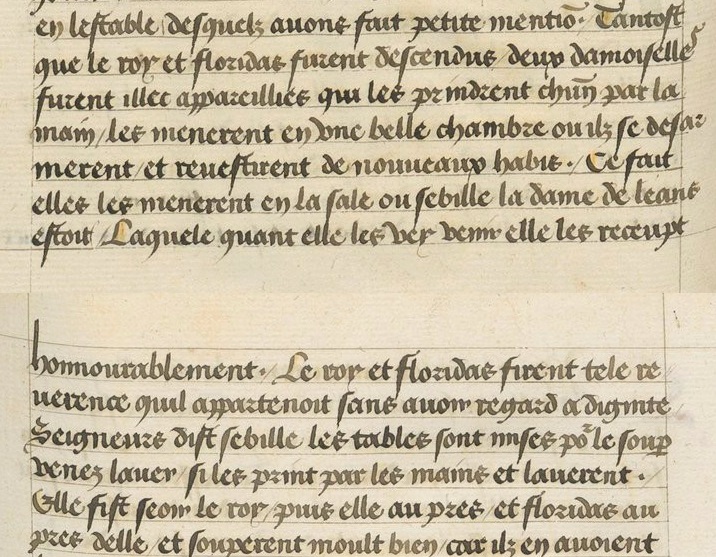 en lestable / desquelz auons fait petite mentiō. Tantost
que le roy et floridas furent descendus / deux damoiselles
furent illec appareillies qui les prindrent chūn par la
main / les menerent en vne belle chambre ou ilz se desar
merent / et reuestirent de nouueaux habis. Ce fait
elles les menerent en la sale ou sebille la dame de leans
estoit / Laquele quant elle les vey venir elle les receupt
honnourablement. Le roy et floridas firent tele re
uerence quil appartenoit sans auoir regard a dignite
Seigneurs dist sebille les tables sont mises po᷑ le soup̲
venez lauer / si les print par les mains et lauerent.
Elle fist seoir le roy / puis elle au pres / et floridas au
pres delle / et souperent moult bien / car ilz en auoient